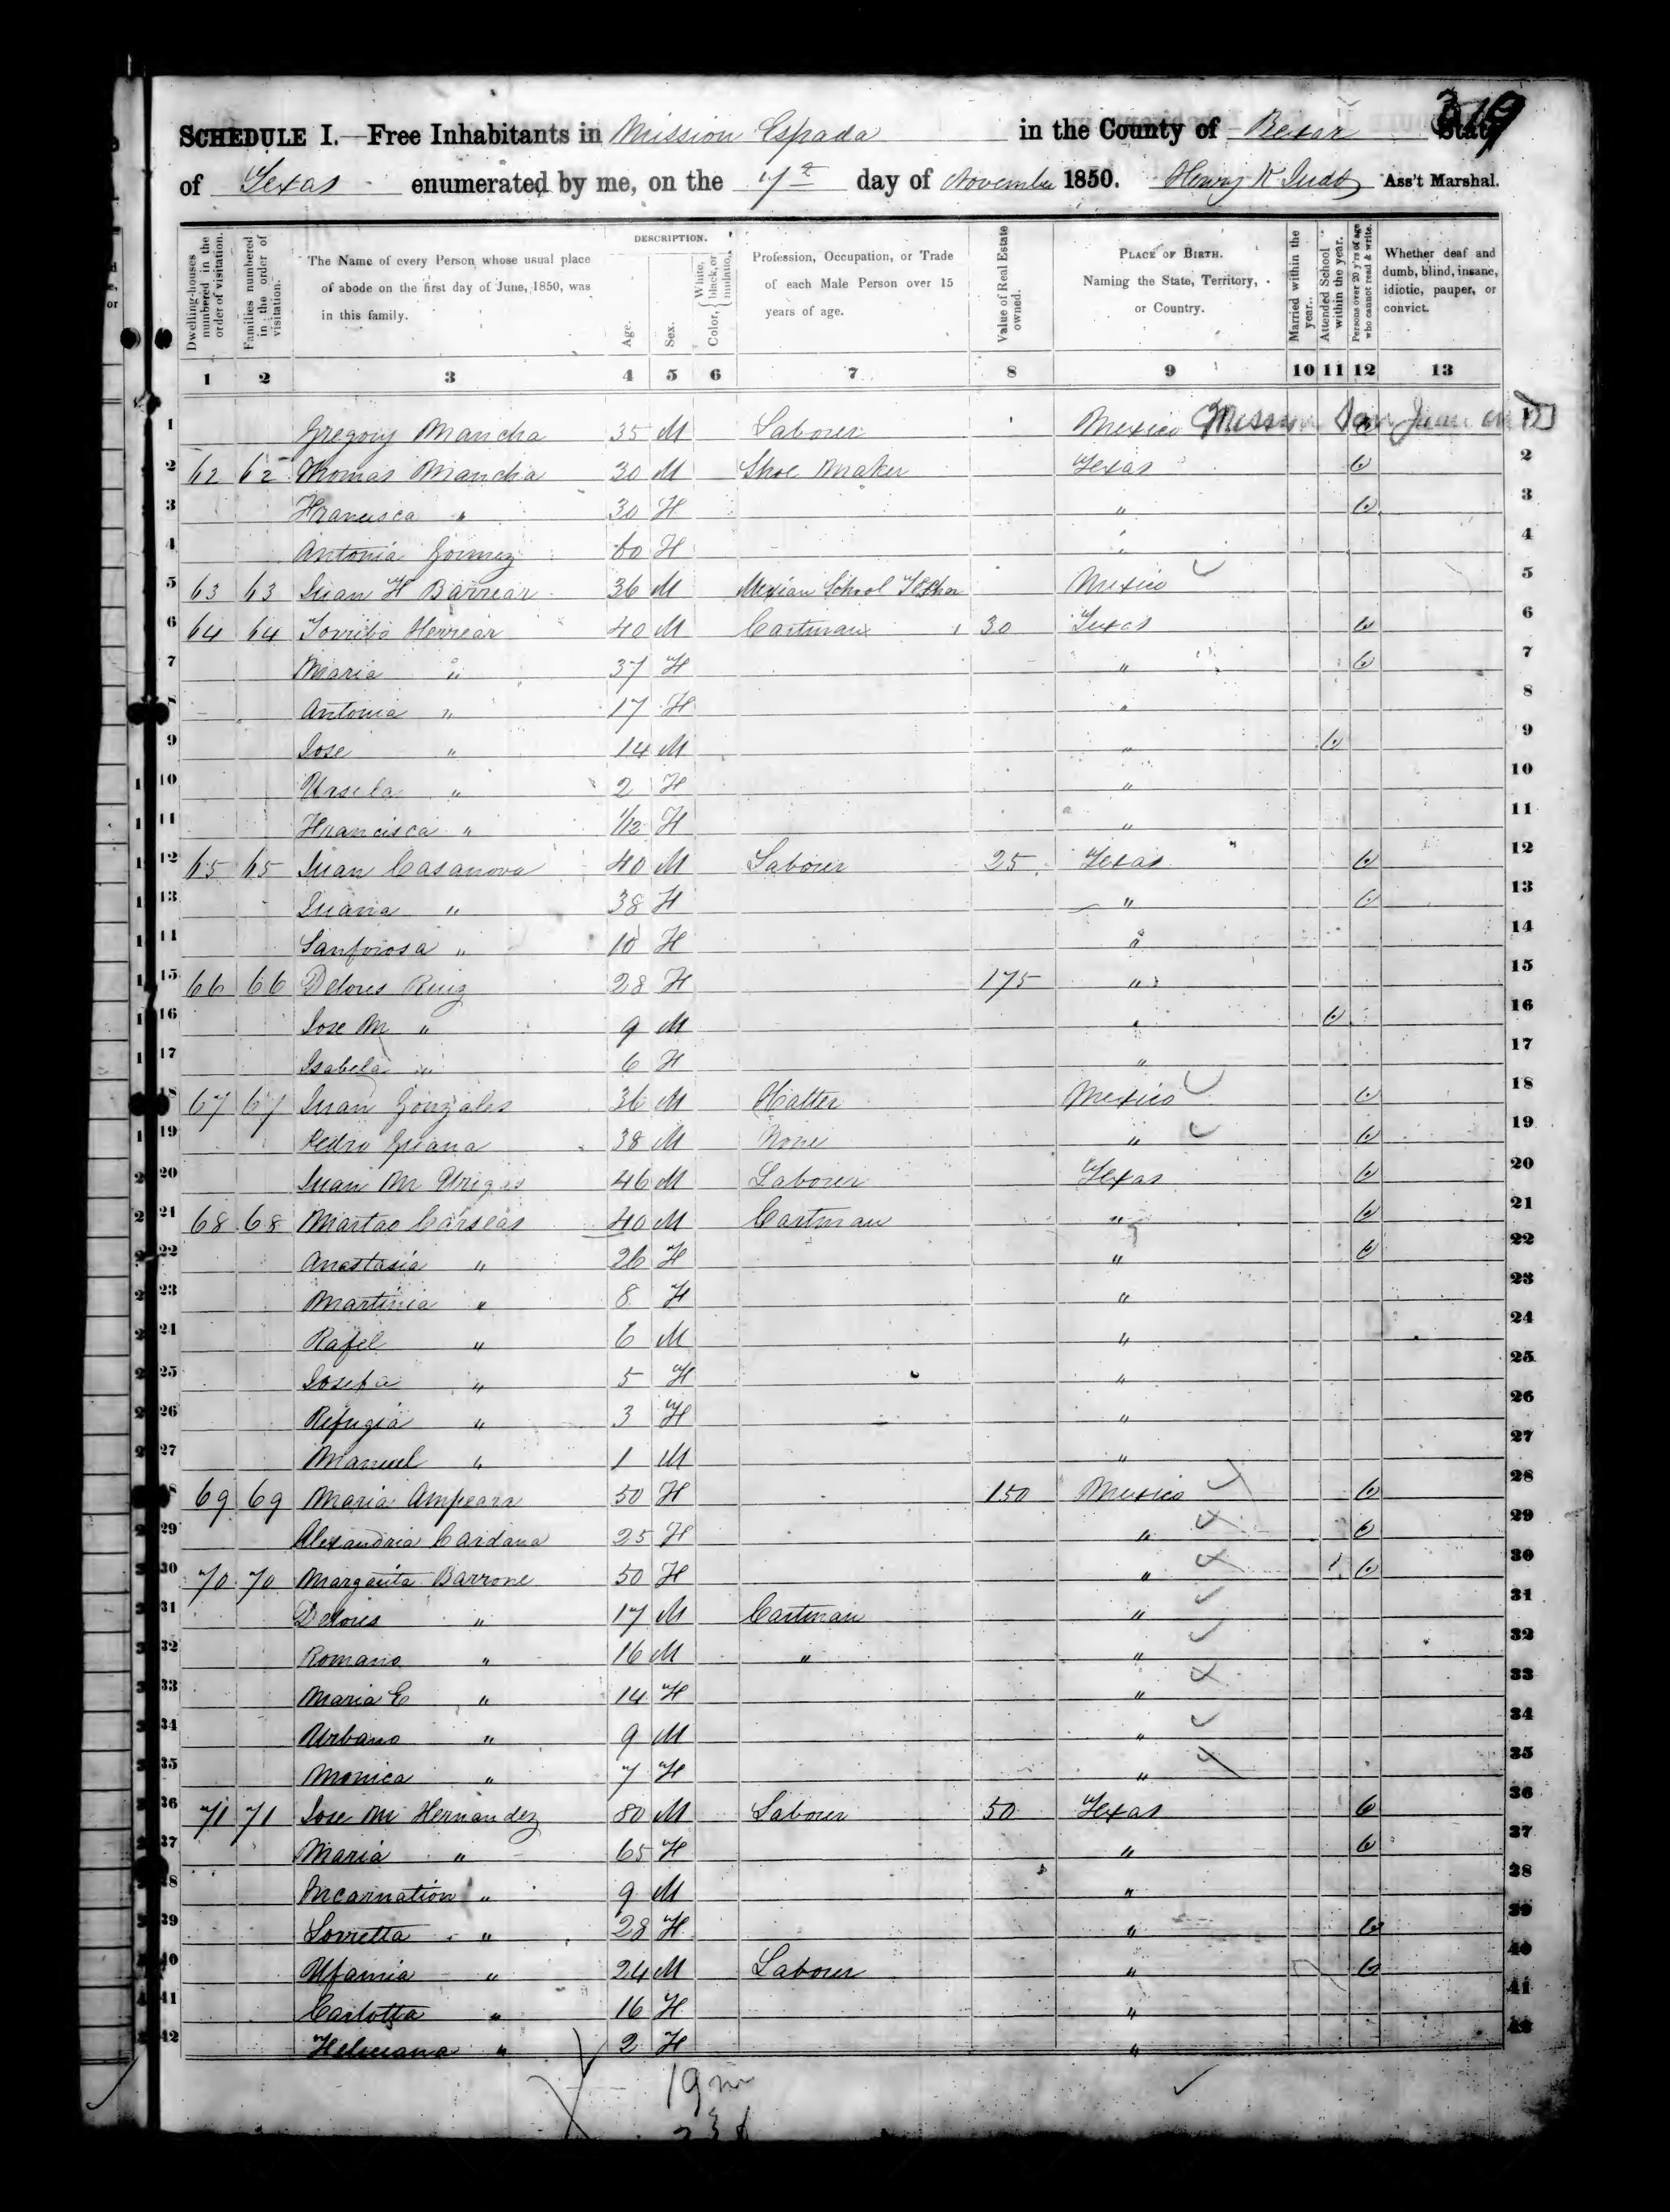 319
SCHEDULE I.—Free Inhabitants in Mission Espada in the County of Bexar State
of Texas enumerated by me, on the 7th day of November 1850. Henry K Judd Ass't Marshal.
Dwelling-houses numbered in the order of visitation.
Families numbered in the order of visitation.
The Name of every Person whose usual place of abode on the first day of June, 1850, was in this family.
DESCRIPTION.
Age.
Sex.
Color, White, black, or mulatto.
Profession, Occupation, or Trade of each Male Person over 15 years of age.
Value of Real Estate owned.
PLACE OF BIRTH. Naming the State, Territory, or Country.
Married within the year.
Attended School within the year.
Persons over 20 y'rs of age who cannot read & write.
Whether deaf and dumb, blind, insane, idiotic, pauper, or convict.
1 2 3 4 5 6 7 8 9 10 11 12 13
1 Gregory Mancha 35 M Laborer Mexico Mission San Juan 1
2 62 62 Thomas Mancha 30 M Shoe Maker Texas 2
3 Francisca " 30 F " 3
4 Antonia Gomez 60 F " 4
5 63 63 Juan F Barrear 36 M Mexican School Mexico 5
6 64 64 Torribo Herrear 40 M Cartman 30 Texas 6
7 Maria " 37 F " 7
8 Antonia " 17 F " 8
9 Jose " 14 M " 9
10 Ursela " 2 F " 10
11 Francisca " 1/12 F " 11
12 65 65 Juan Casanova 40 M Laborer 25 Texas 12
13 Juana " 38 F " 13
14 Sanforosa " 10 F " 14
15 66 66 Delores Ruiz 28 F 175 " 15
16 Jose M " 9 M " 16
17 Isabela " 6 F " 17
18 67 67 Juan Gonzales 36 M Hatter Mexico 18
19 Pedro 38 M None " 19
20 Juan M 46 M Laborer Texas 20
21 68 68 Martao Carseas 40 M Cartman " 21
22 Anastasia " 26 F " 22
23 Martinia " 8 F " 23
24 Rafel " 6 M " 24
25 Josefa " 5 F " 25
26 Refugia " 3 F " 26
27 Manuel " 1 M " 27
28 69 69 Maria Ampeara 50 F 150 Mexico 28
29 Alexandria Cardana 25 F " 29
30 70 70 Margarita Barrone 50 F " 30
31 Delores " 17 M Cartman " 31
32 Romano " 16 M " " 32
33 Maria C " 14 F " 33
34 Urbano " 9 M " 34
35 Monica " 7 F " 35
36 71 71 Jose M Hernandez 80 M Laborer 50 Texas 36
37 Maria " 65 F " 37
38 Incarnation " 9 M " 38
39 Lorretta " 28 F " 39
40 Ufamia " 24 M Laborer " 40
41 Carlotta " 16 F " 41
42 Feliciana " 2 F " 42
19 m
23 f